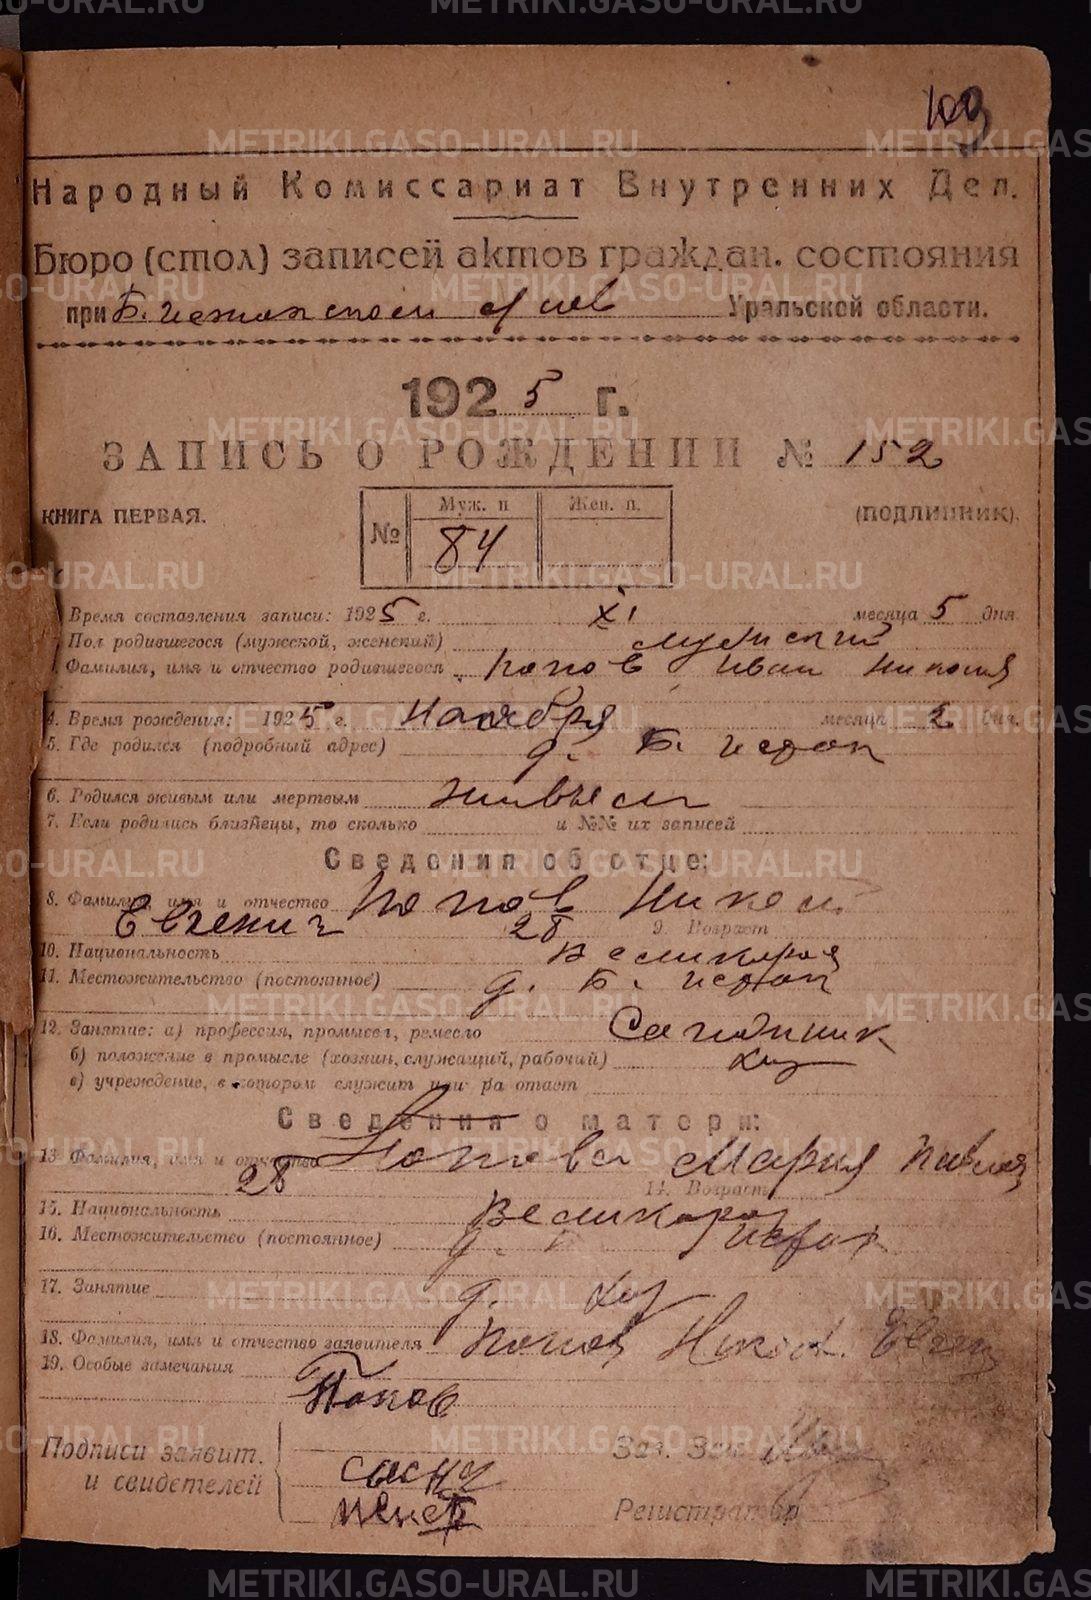 109
Народный Комиссариат Внутренних Дел.
Бюро (стол) записей актов граждан. состояния
при Б. Уральской области.
1925 г.
ЗАПИСЬ О РОЖДЕНИИ № 152
КНИГА ПЕРВАЯ. № Муж. п Жен. п. (ПОДЛИННИК).
84
Время составления записи: 1925 г. XI месяца 5 дня.
Пол родившегося (мужской, женский) мужской
Фамилия, имя и отчество родившегося Попов Иван Никола
4. Время рождения: 1925 г. Ноября месяца 2 дня.
5. Где родился (подробный адрес) д. Б. Исток
6. Родился живым или мертвым живым
7. Если родились близнецы, то сколько и №№ их записей
Сведения об отце:
8. Фамилия, имя и отчество Попов Никол
Евгенич 28 9. Возраст
10. Национальность Великорос
11. Местожительство (постоянное) д. Б. Исток
12. Занятие: а) профессия, промысел, ремесло
б) положение в промысле (хозяин, служащий, рабочий) хоз
в) учреждение, в котором служит или ра отает
Сведения о матери:
13. Фамилия, имя и отчество Попова Мария Павлов
28 14. Возраст
15. Национальность Великорос
16. Местожительство (постоянное) д. Б Исток
17. Занятие д. хоз
18. Фамилия, имя и отчество заявителя Попов Никол. Евген
19. Особые замечания
Попов
Подписи заявит. Заг. Зав
и свидетелей Регистратор
METRIKI.GASO-URAL.RU